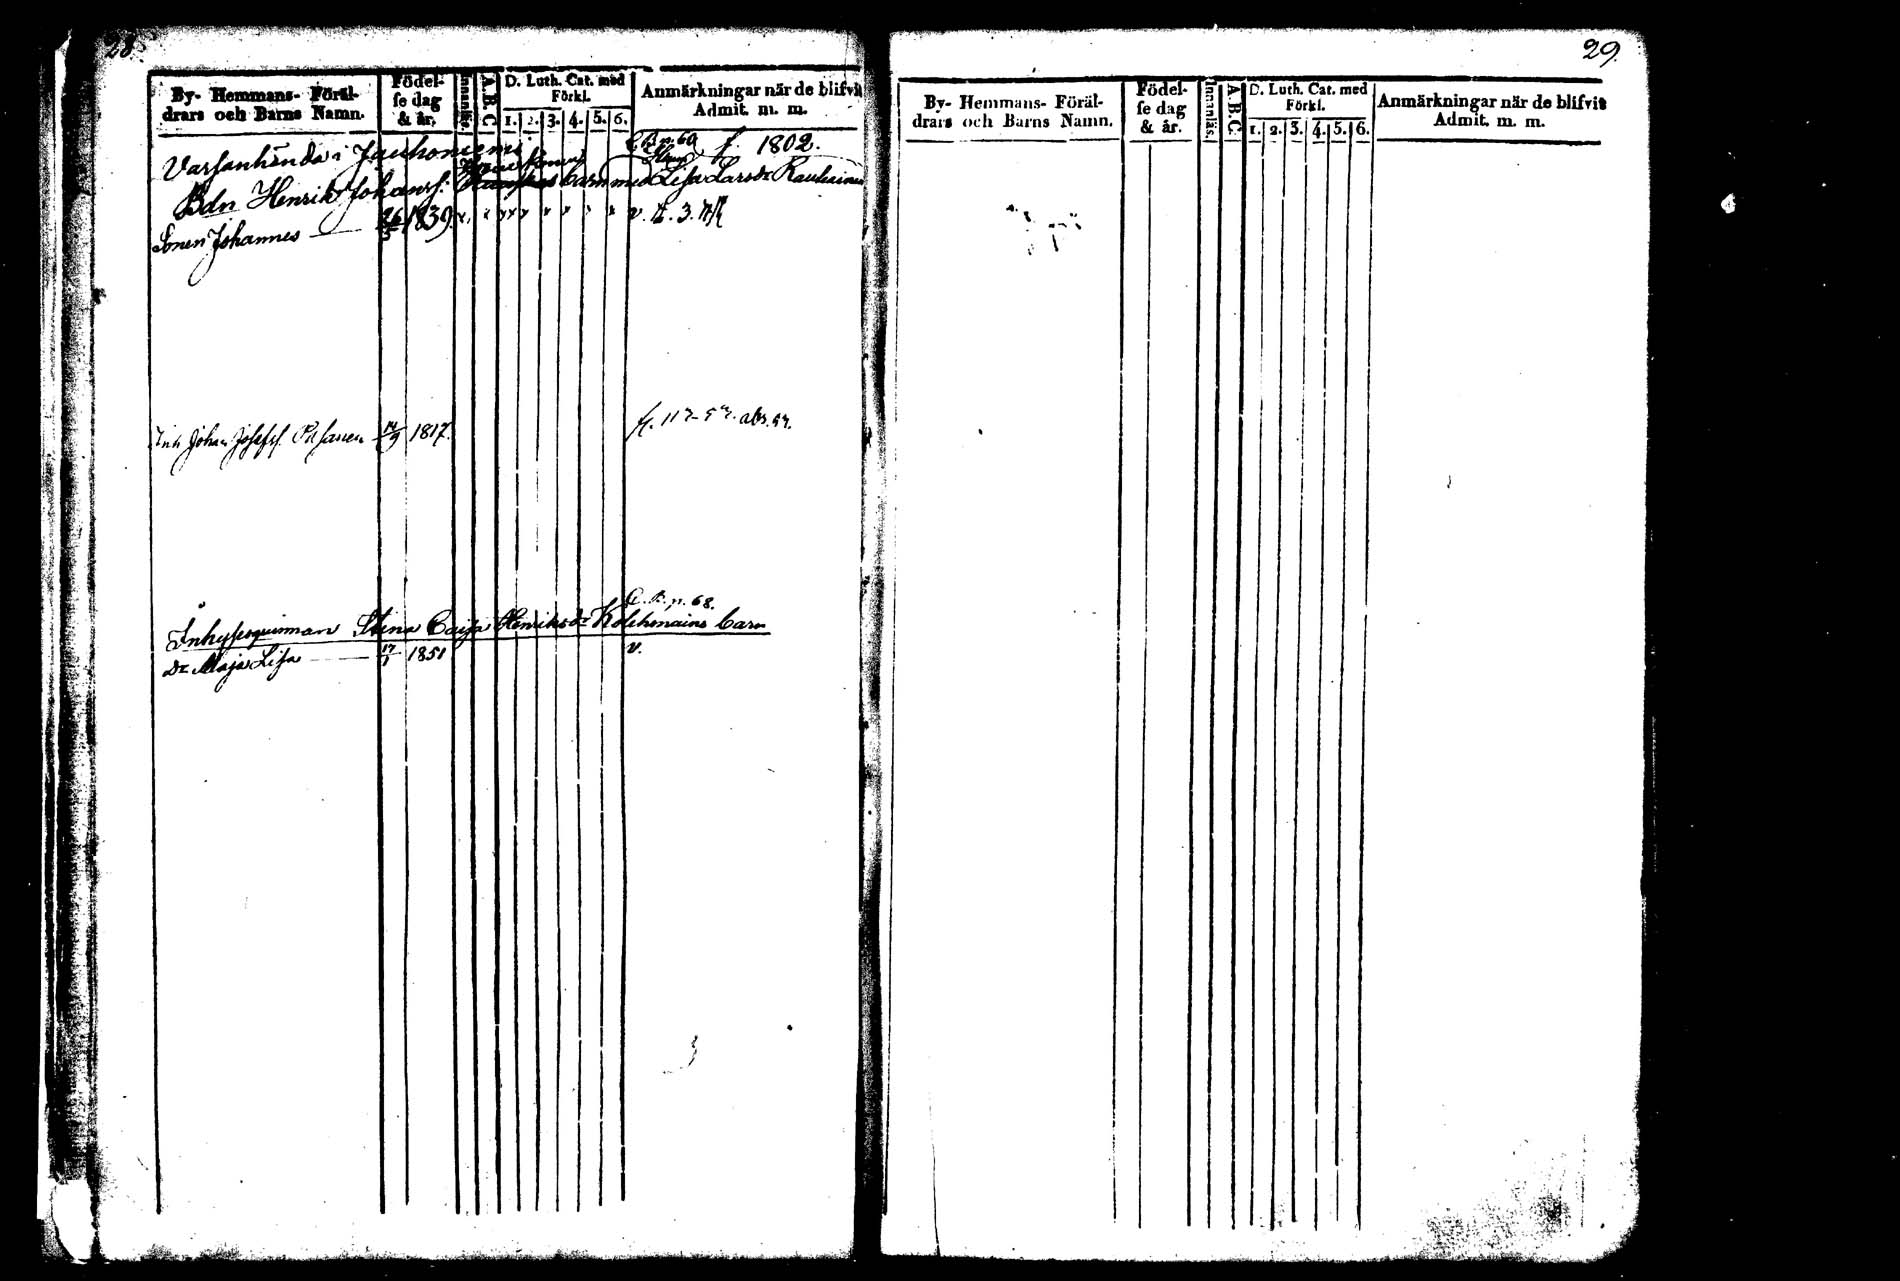 28.
By- Hemmans- Föräl-
drars och Barns Namn.
Födel-
se dag
& år.
Innanläs.
A. B. C
D. Luth. Cat. med
Förkl.
1. 2. 3. 4. 5. 6.
Anmärkningar när de blifvit
Admit. m. m.
i Jauhoniemi
C.B. p. 60
f. 1802.
Bdn Henrik Johanss: barn med Lisa Larsdr
Sonen Johannes 26/5 1839. v.
Inh Johan Josefss. 14/9 1817.
C. B. p. 68.
Inhysesquinnan Stina Caisa Henriksdr Kolehmains barn
Dr Maja Lisa 17/1 1851 v.
29.
By- Hemmans- Föräl-
drars och Barns Namn.
Födel-
se dag
& år.
Innanläs.
A. B. C
D. Luth. Cat. med
Förkl.
1. 2. 3. 4. 5. 6.
Anmärkningar när de blifvit
Admit. m. m.